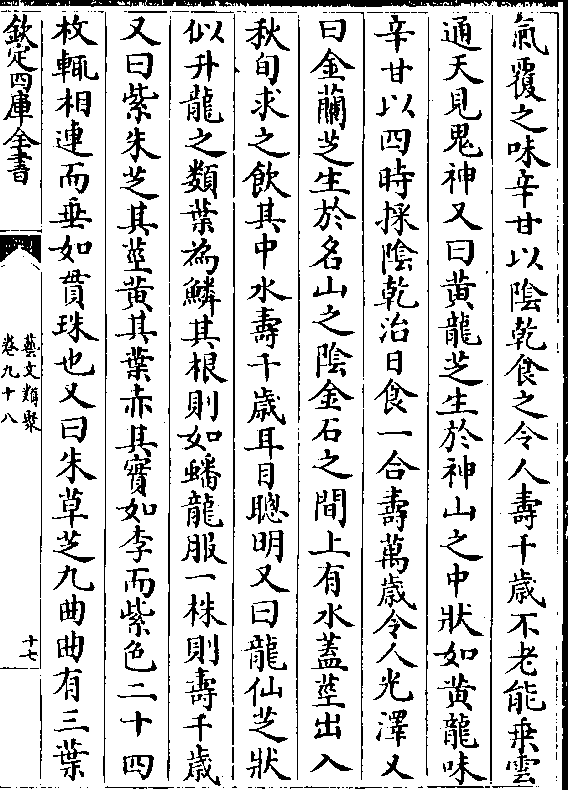 氣覆之味辛甘以陰乾食之令人壽千歲不老能乗雲
通天見鬼神又曰黄龍芝生於神山之中狀如黄龍味
辛甘以四時採陰乾治日食一合壽萬歲令人光澤又
曰金蘭芝生於名山之陰金石之間上有水蓋莖出入
秋旬求之飲其中水壽千歲耳目聰明又曰龍仙芝狀
似升龍之類葉為鱗其根則如蟠龍服一株則壽千歲
又曰紫朱芝其莖黄其葉赤其實如李而紫色二十四
枚輒相連而垂如貫珠也又曰朱草芝九曲曲有三葉
欽定四庫全書
藝文類聚
卷九十八
十七